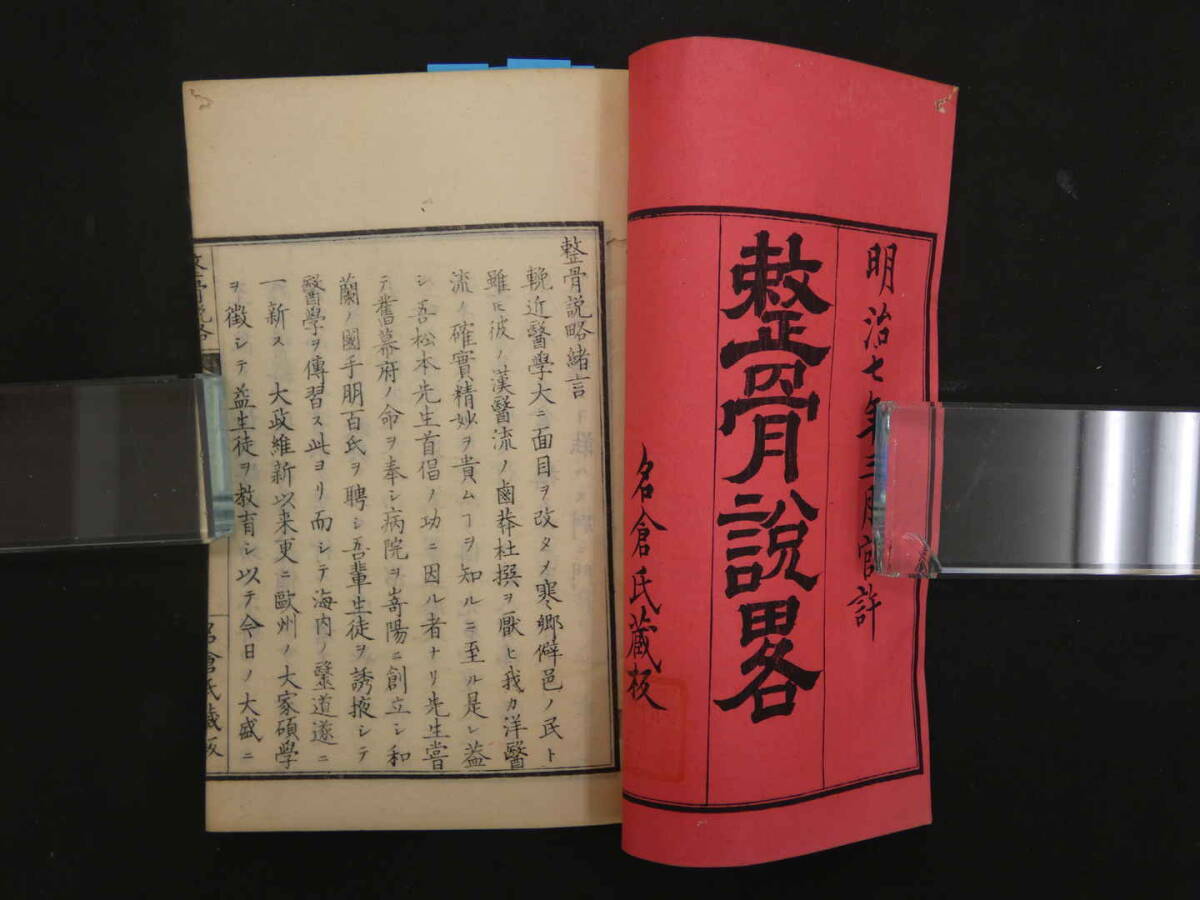 明治七年三月官許
整骨說畧
名倉氏蔵板
整骨説略緒言
輓近醫學大ニ面目ヲ改タメ寒郷僻邑ノ民ト
雖𪜈彼ノ漢醫流ノ鹵莽杜撰ヲ厭ヒ我カ洋醫
流ノ確實精妙ヲ貴ムヿヲ知ルニ至ル是レ益
シ吾松本先生首倡ノ功ニ因ル者ナリ先生嘗
テ舊幕府ノ命ヲ奉シ病院ヲ嵜陽ニ創立シ和
蘭ノ國手朋百氏ヲ聘シ吾輩生徒ヲ誘掖シテ
醫學ヲ傳習ス此ヨリ而シテ海内ノ醫道遂ニ
一新ス 大政維新以来更ニ歐州ノ大家碩學
ヲ徴シテ益生徒ヲ教育シ以テ今日ノ大盛ニ
整骨説略
名倉氏蔵版